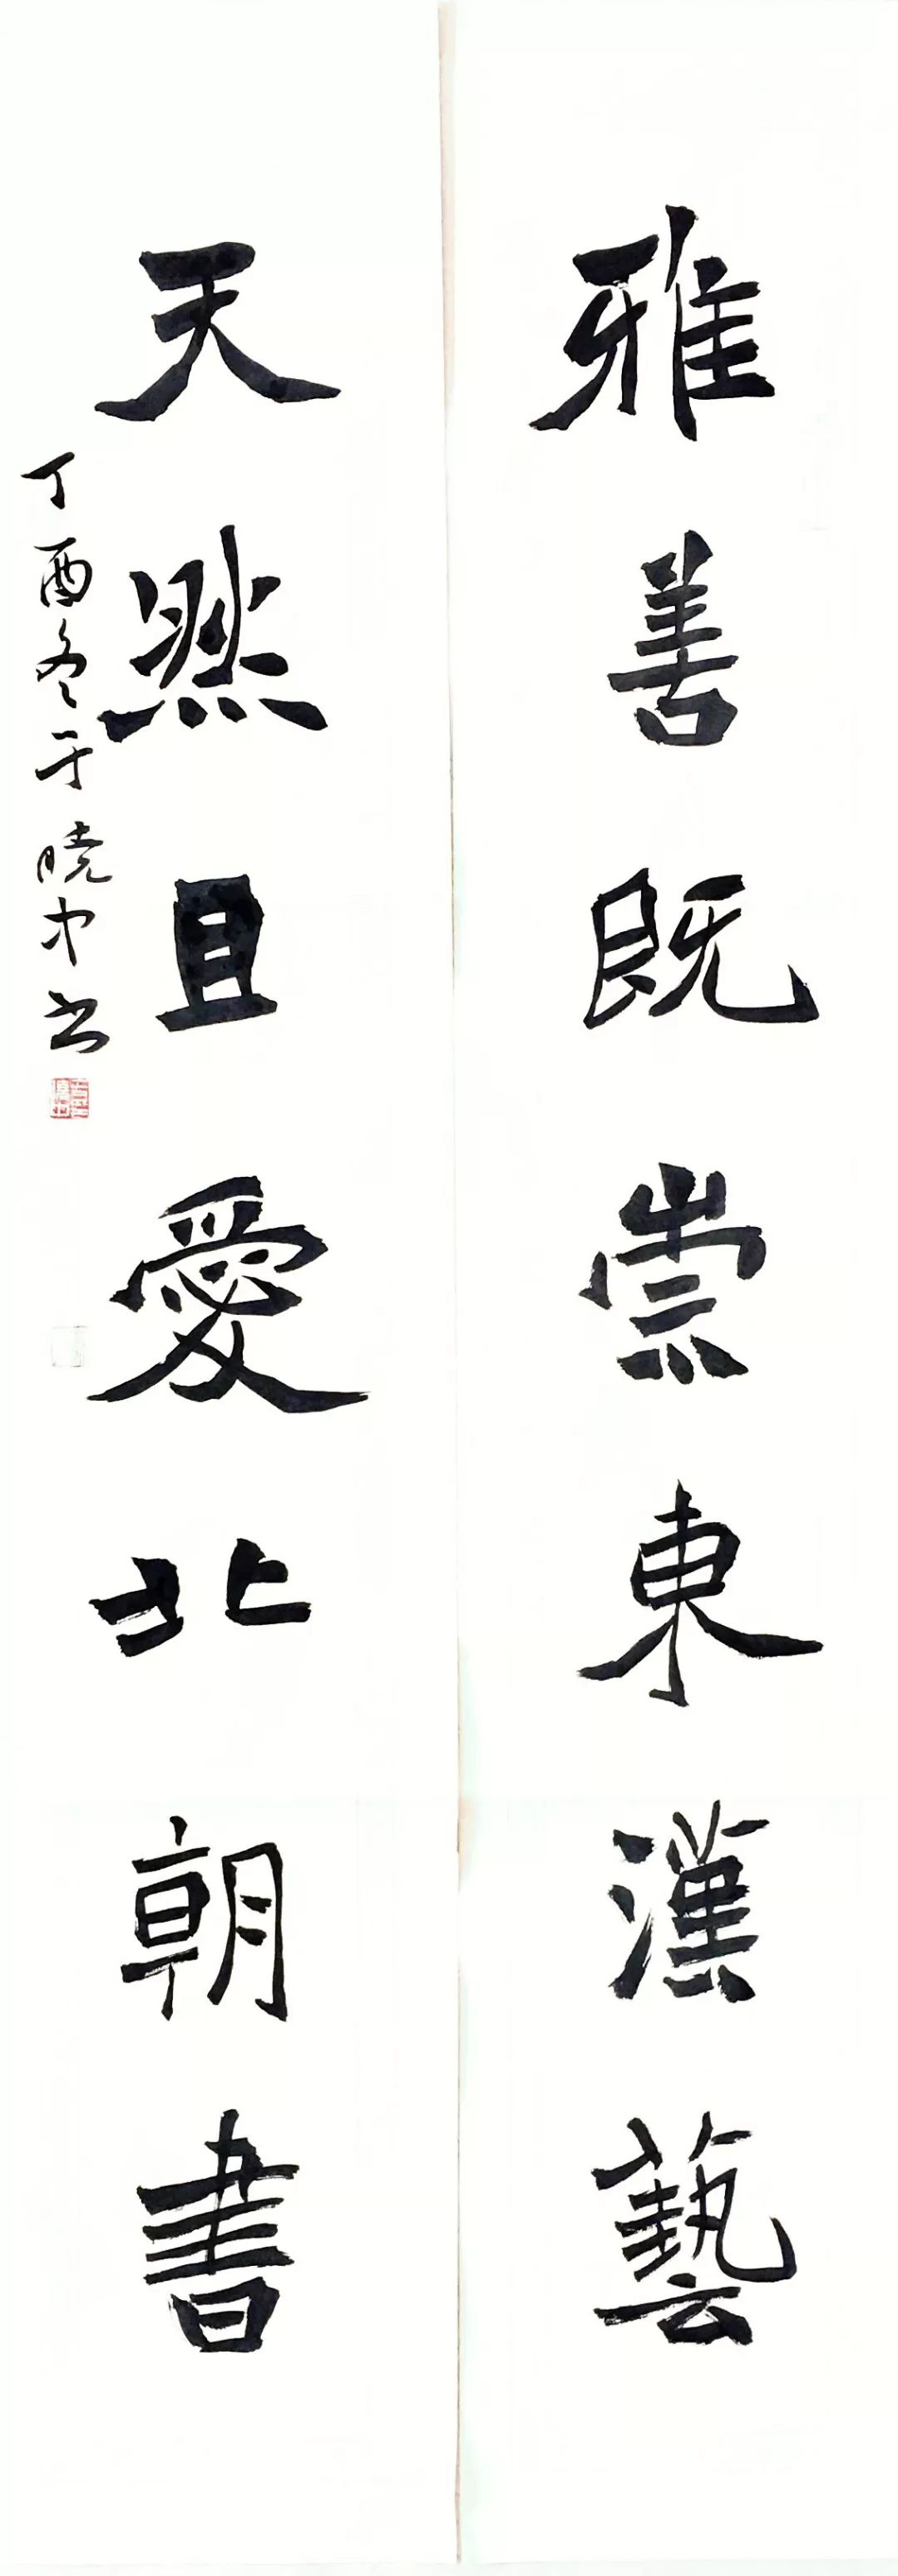 雅善既崇東漢藝
天然且愛北朝書
丁酉冬于曉中书